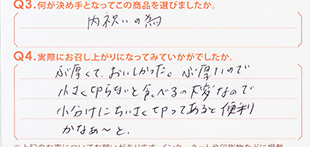 Q3.何が決め手となってこの商品を選びましたか。
内祝いの為
Q4.実際にお召し上がりになってみていかがでしたか。
ぶ厚くて、おいしかった。ぶ厚いので
小さく切らないと食べるの大変なので
小分けにちいさく切ってあると便利
かなぁ〜と。